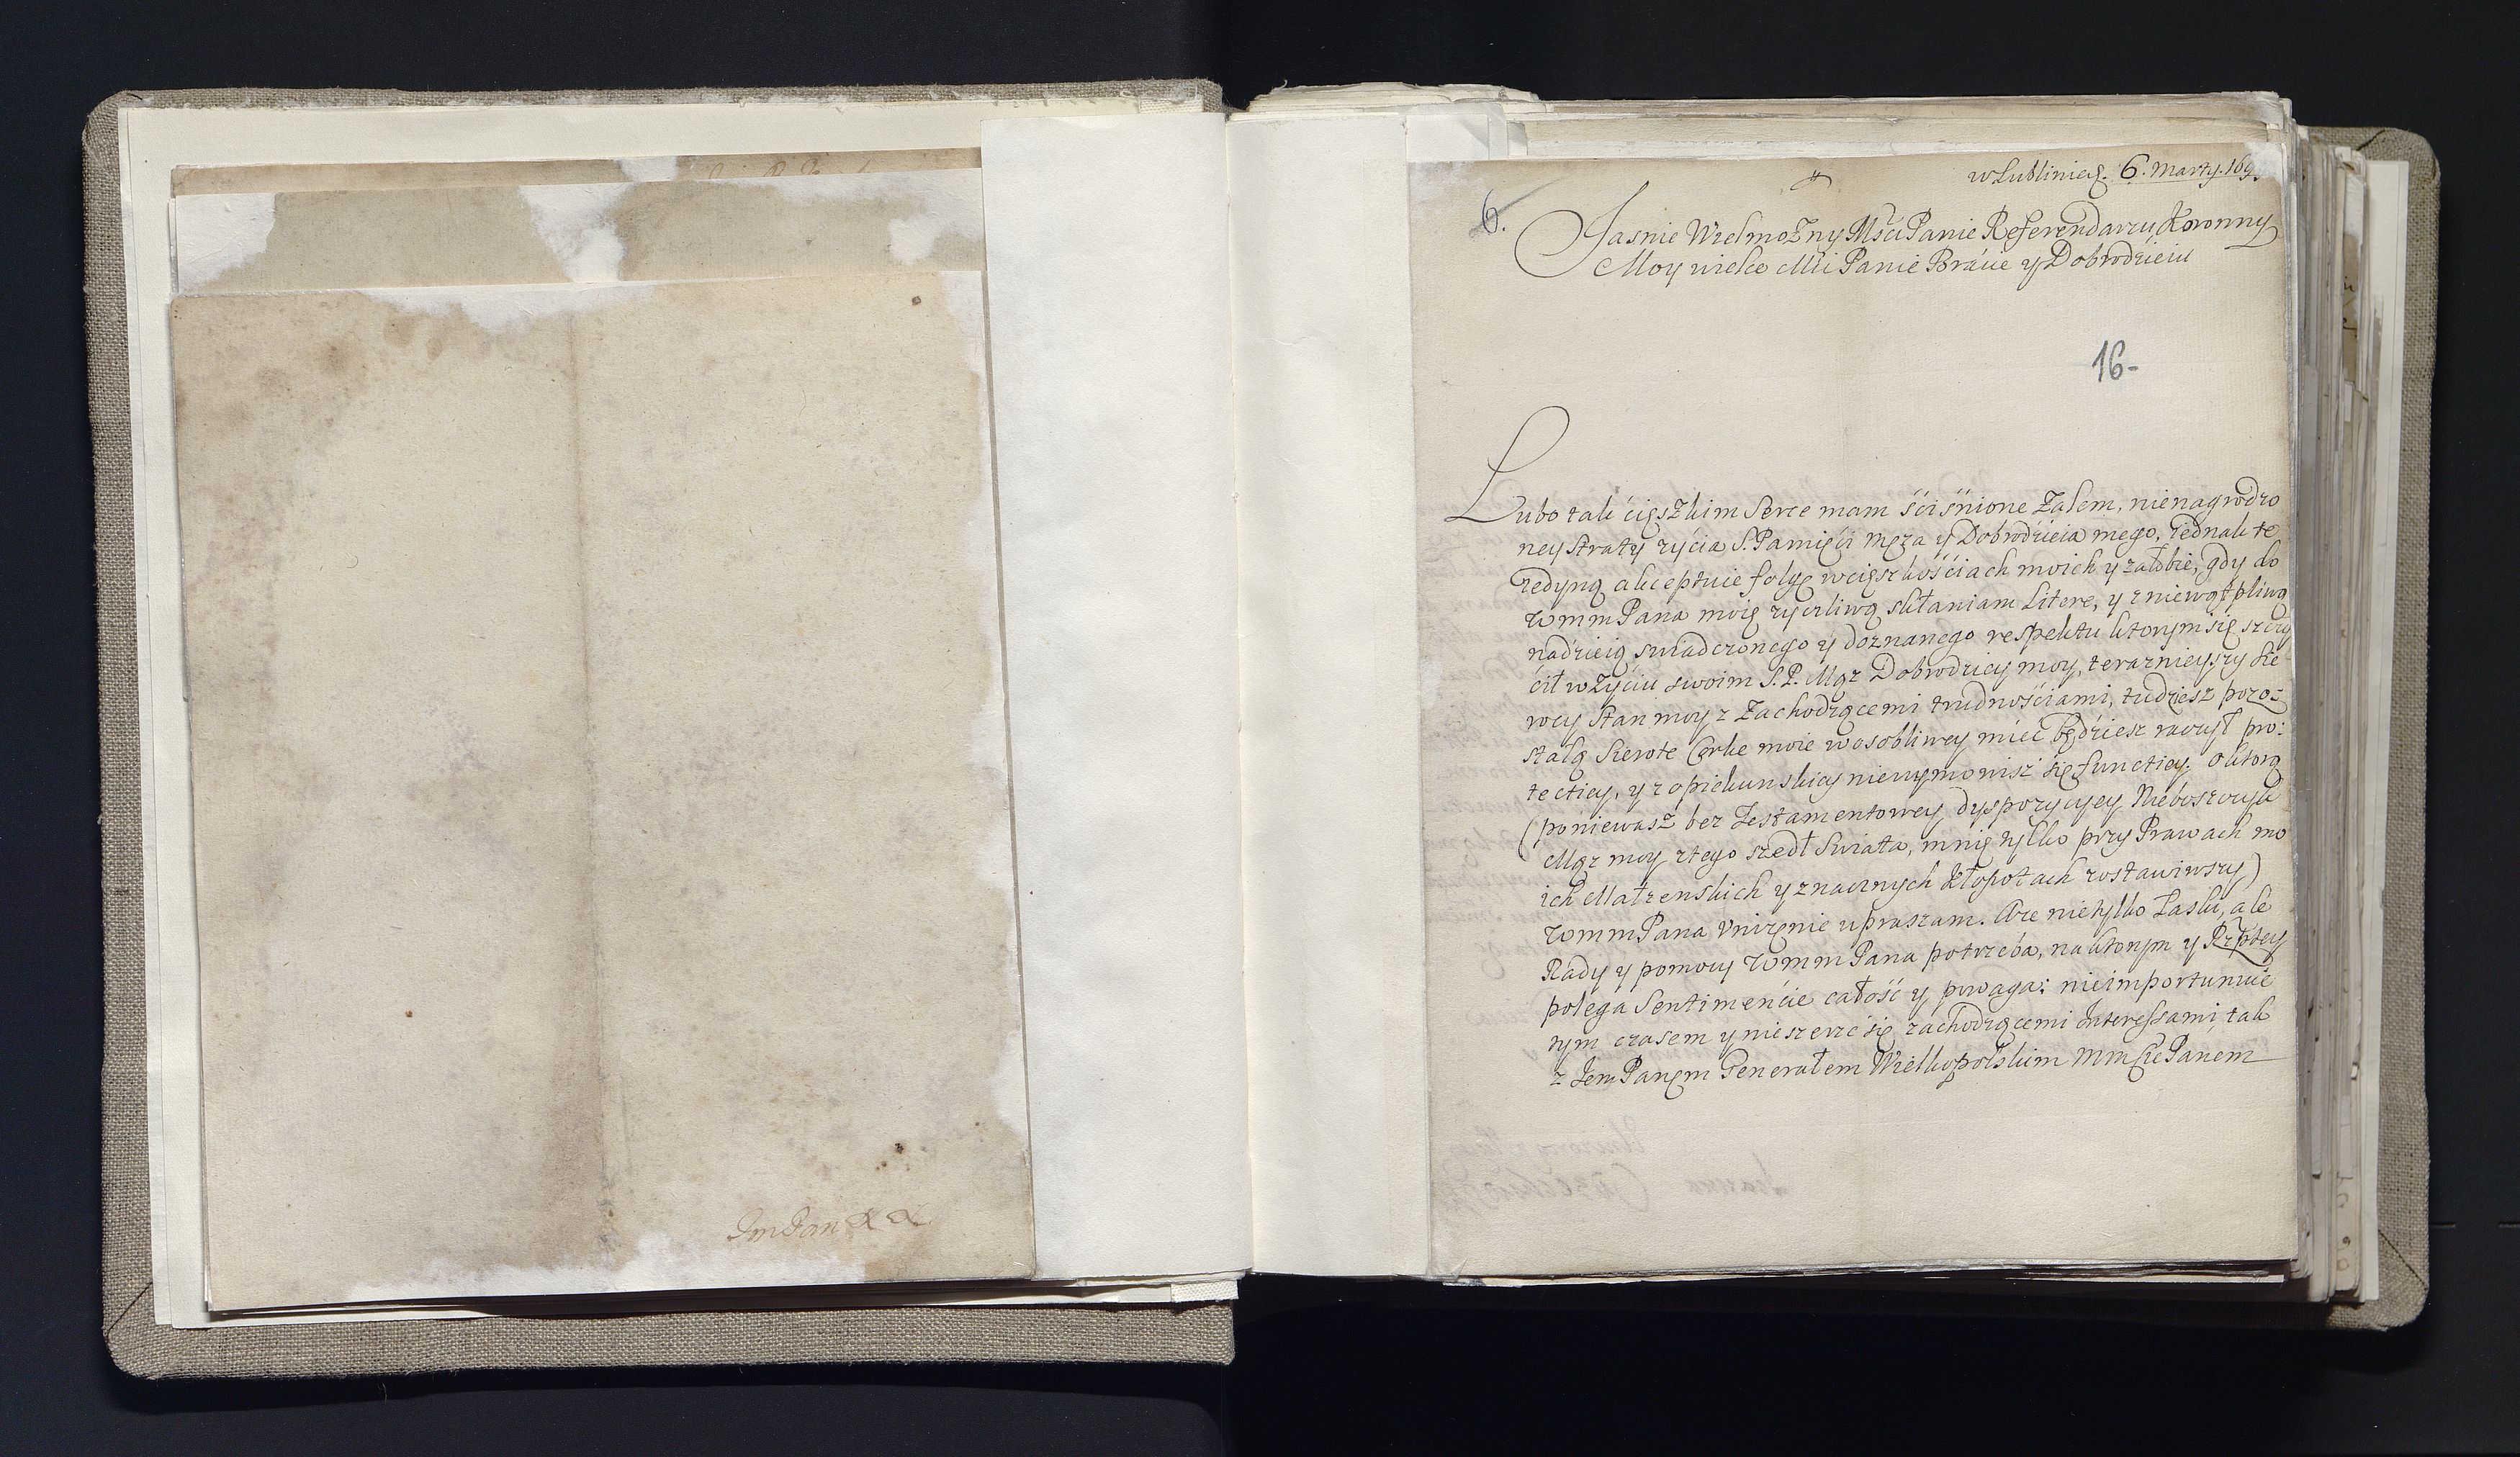 JmPan
w Lublinie d. 6. Marty. 169
6.
Jasnie Wielmożny Mści Panie Referendarzu Koronny
Moy wielce Mśći Panie Bráćie y Dobrodźieiu
16-
Lubo tak ćięszkim Serce mam śćiśnione Żalem, nienagrodzo
ney Straty zyćia S. Pamięći męża y Dobrodźieia mego, Iednak te
Iedyną akceptuie folgę wćięszkośćiach moich y załobie, gdy do
WmmPana moię zyczliwą skłaniam Litere, y z niewątpliwą
nadźieią swiadczonego y doznanego respektu ktorym się szczy
ćił w Żyćiu swoim S. P. Mąz Dobrodziey moy, teraznieyszy Sie
rocy Stan moy z Zachodzącemi trudnośćiami, tudziesz pozo:
stałą Sierote Corke moie wosobliwey mieć będźiesz raczył pro:
tectiey, y z opiekunskiey niewymowisz się functiey. Oktorą
(poniewasz bez Testamentowey dyspozycyey Nieboszczyk
Mąz moy ztego szedł Swiata, mnię tylko przy Prawach mo
ich Małzenskich y znacznych kłopotach zostawiwszy)
WmmPana vniżenie upraszam. Aze nietylko Łaski, ale
Rady y pomocy WmmPana potrzeba, naktorym y Rzptey
polega Sentimenćie całość y powaga: nieimportunuie
tym czasem y nieszerzć się zachodzącemi Interessami, tak
z Jem Panem Generałem Wielkopolskim Panem